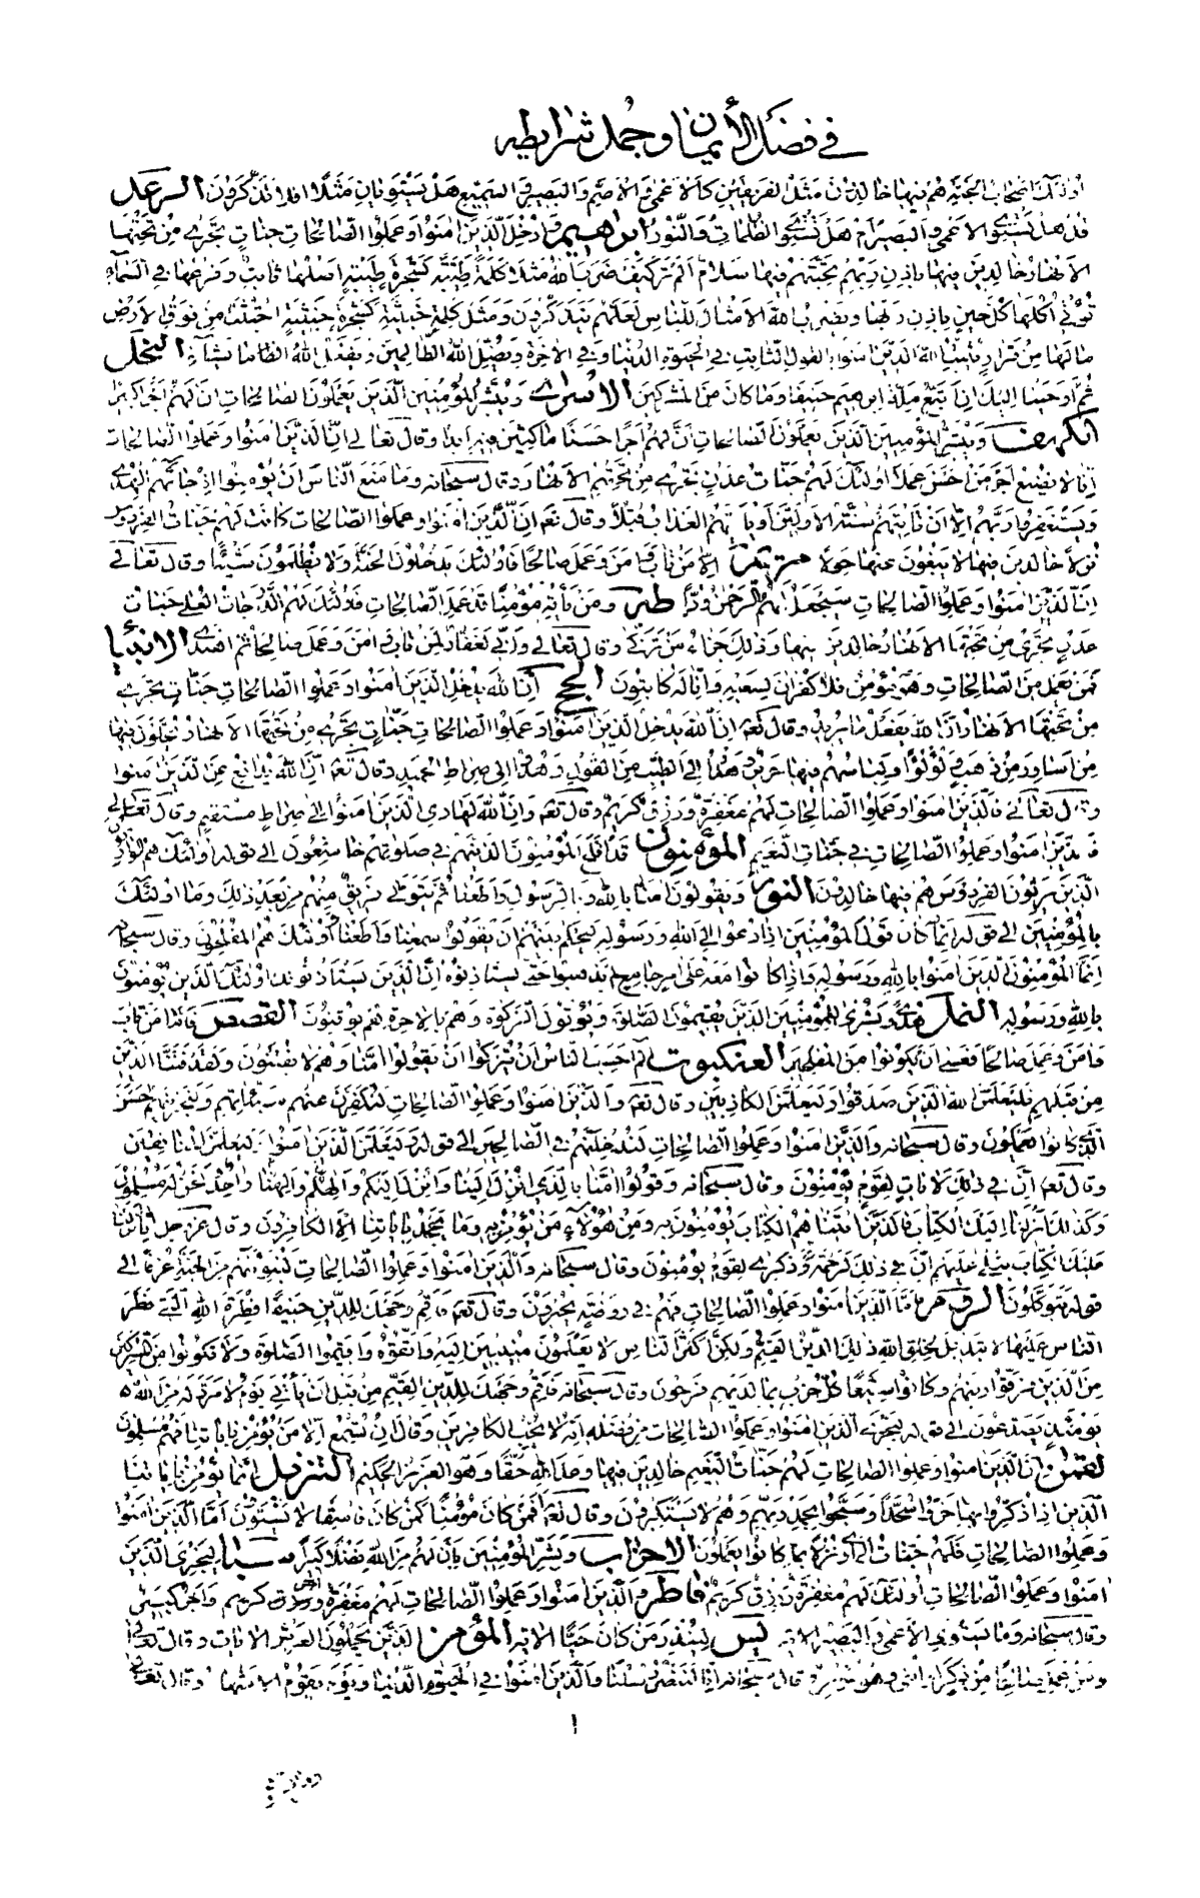 في فضل الأيمان وجمل شرايطه
أولئك اصحاب الجنة هم فيها خالدون مثل الفريقين كالاعمى والاصم والبصير والسميع هل يستويان مثلا افلا تذكرون الرعد
قل هل يستوى الاعمى والبصير ام هل تستوى الظلمات والنور ابرهيم وادخل الذين امنوا وعملوا الصالحات جنات تجرى من تحتها
الانهار خالدين فيها باذن ربهم تحيتهم فيها سلام الم تر كيف ضرب الله مثلا كلمة طيبة كشجرة طيبة اصلها ثابت وفرعها في السماء
تؤتي اكلها كل حين باذن ربها ويضرب الله الامثال للناس لعلهم يتذكرون ومثل كلمة خبيثة كشجرة خبيثة اجتثت من فوق الارض
ما لها من قرار يثبت الله الذين امنوا بالقول الثابت في الحيوة الدنيا وفي الاخرة ويضل الله الظالمين ويفعل الله ما يشاء النحل
ثم اوحينا اليك ان اتبع ملة ابرهيم حنيفا وما كان من المشركين الاسرى ويبشر المؤمنين الذين يعملون الصالحات ان لهم اجرا كبيرا
الكهف ويبشر المؤمنين الذين يعملون الصالحات ان لهم اجرا حسنا ماكثين فيه ابدا وقال تعالى ان الذين امنوا وعملوا الصالحات
انا لا نضيع اجر من احسن عملا اولئك لهم جنات عدن تجرى من تحتهم الانهار وقال سبحانه وما منع الناس ان يؤمنوا اذ جاءهم الهدى
ويستغفروا ربهم الا ان تاتيهم سنة الاولين او ياتيهم العذاب قبلا وقال تعم ان الذين امنوا وعملوا الصالحات كانت لهم جنات الفردوس
نزلا خالدين فيها لا يبغون عنها حولا مريم الا من تاب وامن وعمل صالحا فاولئك يدخلون الجنة ولا يظلمون شيئا وقال تعالى
ان الذين امنوا وعملوا الصالحات سيجعل لهم الرحمن ودا طه ومن يأته مؤمنا قد عمل الصالحات فاولئك لهم الدرجات العلى جنات
عدن تجرى من تحتها الانهار خالدين فيها وذلك جزاء من تزكى وقال تعالى واني لغفار لمن تاب وامن وعمل صالحا ثم اهتدى الانبيا
فمن يعمل من الصالحات وهو مؤمن فلا كفران لسعيه وانا له كاتبون الحج ان الله يدخل الذين امنوا وعملوا الصالحات جنات تجرى
من تحتها الانهار ان الله يفعل ما يريد وقال تعم ان الله يدخل الذين امنوا وعملوا الصالحات جنات تجرى من تحتها الانهار يحلون فيها
من اساور من ذهب ولؤلؤا ولباسهم فيها حرير وهدوا الى الطيب من القول وهدوا الى صراط الحميد وقال تعم ان الله يدافع عن الذين امنوا
وقال تعالى فالذين امنوا وعملوا الصالحات لهم مغفرة ورزق كريم وقال تعم وان الله لهادي الذين امنوا الى صراط مستقيم وقال تعالى
فالذين امنوا وعملوا الصالحات في جنات النعيم المؤمنون قد افلح المؤمنون الذينهم في صلوتهم خاشعون الى قوله اولئك هم الوارثون
الذين يرثون الفردوس هم فيها خالدون النور ويقولون امنا بالله وبالرسول واطعنا ثم يتولى فريق منهم من بعد ذلك وما اولئك
بالمؤمنين الى قوله انما كان قول المؤمنين اذا دعوا الى الله ورسوله ليحكم بينهم ان يقولوا سمعنا واطعنا واولئك هم المفلحون وقال سبحانه
انما المؤمنون الذين امنوا بالله ورسوله واذا كانوا معه على امر جامع لم يذهبوا حتى يستاذنوه ان الذين يستاذنونك اولئك الذين يؤمنون
بالله ورسوله النمل هدى وبشرى للمؤمنين الذين يقيمون الصلوة ويؤتون الزكوة وهم بالاخرة هم يوقنون القصص فاما من تاب
وامن وعمل صالحا فعسى ان يكونوا من المفلحين العنكبوت الم احسب الناس ان يتركوا ان يقولوا امنا وهم لا يفتنون ولقد فتنا الذين
من قبلهم فليعلمن الله الذين صدقوا وليعلمن الكاذبين وقال تعم والذين امنوا وعملوا الصالحات لنكفرن عنهم سيئاتهم ولنجزينهم احسن
الذى كانوا يعملون وقال سبحانه والذين امنوا وعملوا الصالحات لندخلنهم في الصالحين الى قوله وليعلمن الذين امنوا وليعلمن المنافقين
وقال تعم ان في ذلك لايات لقوم يؤمنون وقال سبحانه وقولوا امنا بالذي انزل الينا وانزل اليكم والهنا والهكم واحد ونحن له مسلمون
وكذلك انزلنا اليك الكتاب فالذين اتيناهم الكتاب يؤمنون به ومن هؤلاء من يؤمن به وما يجحد باياتنا الا الكافرون وقال عز وجل انا انزلنا
عليك الكتاب يتلى عليهم ان في ذلك لرحمة وذكرى لقوم يؤمنون وقال سبحانه والذين امنوا وعملوا الصالحات لنبوئنهم من الجنة غرفا الى
قوله يتوكلون الروم فاما الذين امنوا وعملوا الصالحات فهم في روضة يحبرون وقال تعم فاقم وجهك للدين حنيفا فطرة الله التى فطر
الناس عليها لا تبديل لخلق الله ذلك الدين القيم ولكن اكثر الناس لا يعلمون منيبين اليه واتقوه واقيموا الصلوة ولا تكونوا من المشركين
من الذين فرقوا دينهم وكانوا شيعا كل حزب بما لديهم فرحون وقال سبحانه فاقم وجهك للدين القيم من قبل ان يأتي يوم لا مرد له من الله
يومئذ يصدعون الى قوله ليجزي الذين امنوا وعملوا الصالحات من فضله انه لا يحب الكافرين وقال ان تسمع الا من يؤمن باياتنا فهم مسلمون
لقمن ان الذين امنوا وعملوا الصالحات لهم جنات النعيم خالدين فيها وعد الله حقا وهو العزيز الحكيم التنزيل انما يؤمن باياتنا
الذين اذا ذكروا بها خروا سجدا وسبحوا بحمد ربهم وهم لا يستكبرون وقال تعم افمن كان مؤمنا كمن كان فاسقا لا يستوون اما الذين امنوا
وعملوا الصالحات فلهم جنات المأوى نزلا بما كانوا يعملون الاحزاب وبشر المؤمنين بان لهم من الله فضلا كبيرا سبا ليجزى الذين
امنوا وعملوا الصالحات اولئك لهم مغفرة ورزق كريم فاطر والذين امنوا وعملوا الصالحات لهم مغفرة واجر كبير
وقال سبحانه وما يستوى الاعمى والبصير الاية يس لينذر من كان حيا الاية المؤمن الذين يحملون العرش الايات وقال تعالى
ومن عمل صالحا من ذكر او انثى وهو مؤمن وقال سبحانه انا لننصر رسلنا والذين امنوا في الحيوة الدنيا ويوم يقوم الاشهاد وقال تعالى